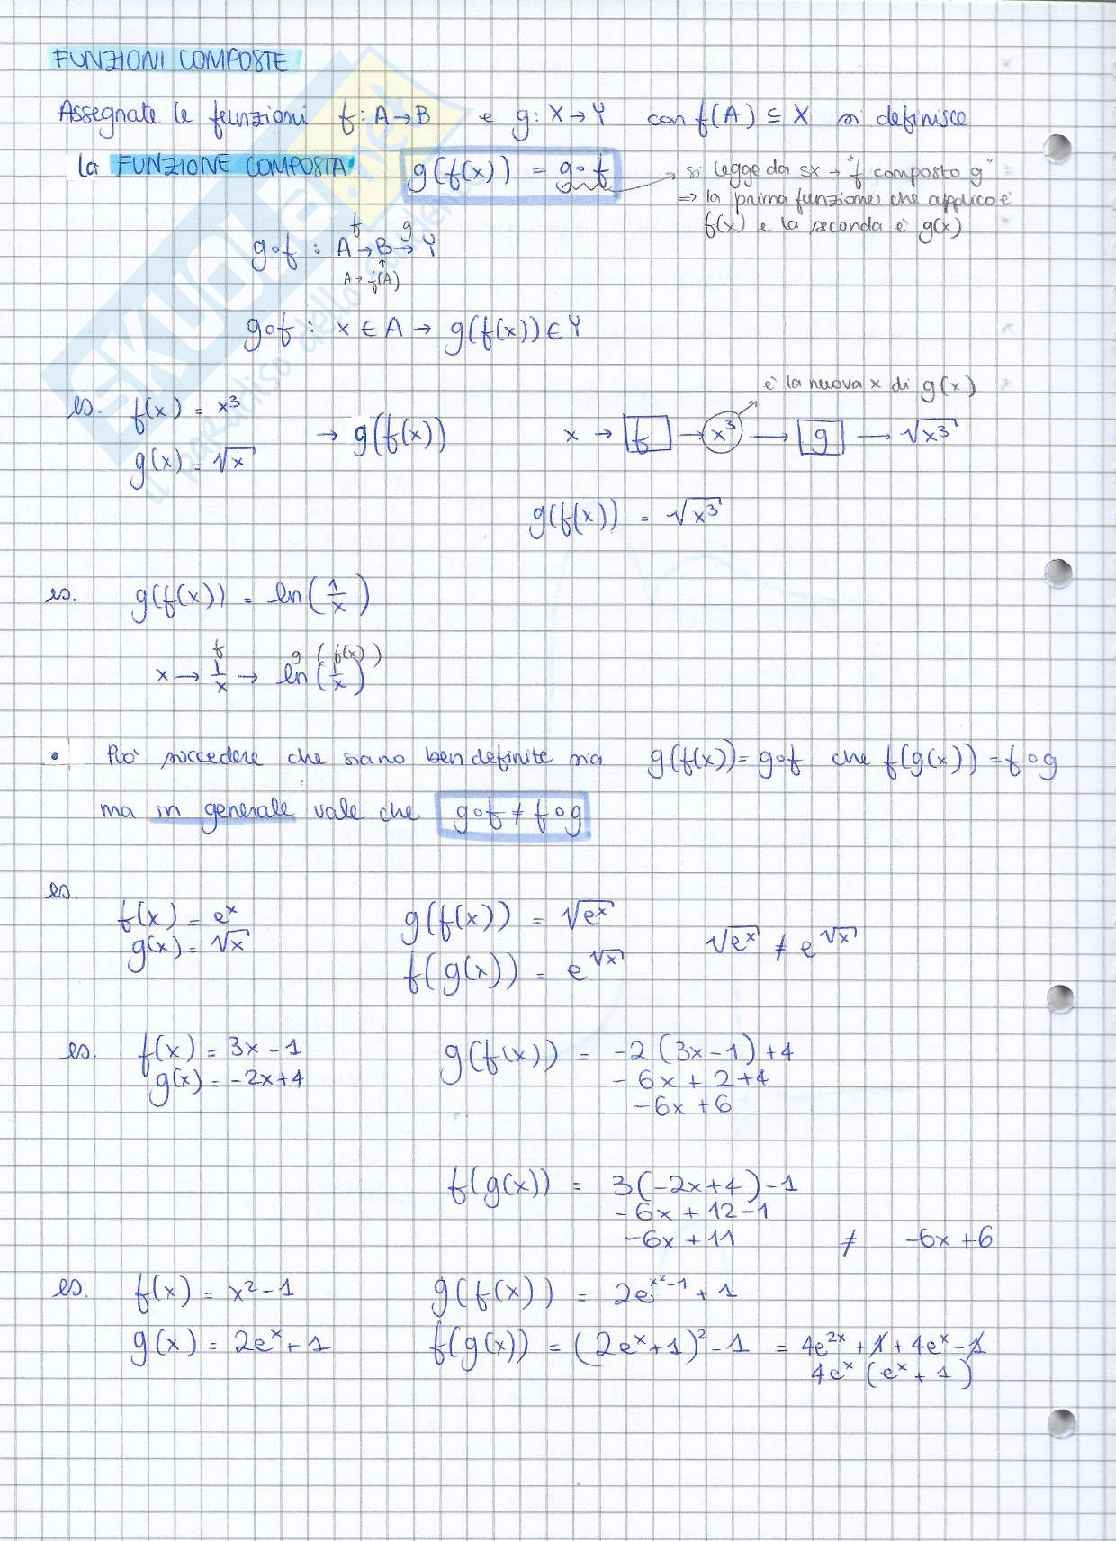 FUNZIONI COMPOSTE
Assegnate le funzioni f: A→B e g: X→Y con f(A) ⊆ X si definisce
la FUNZIONE COMPOSTA g(f(x)) = g∘f → si legge da sx → "f composto g"
⇒ la prima funzione che applico è
f(x) e la seconda è g(x)
g∘f : A →(f) B →(g) Y
A → f(A)
g∘f : x ∈ A → g(f(x)) ∈ Y
è la nuova x di g(x)
es. f(x) = x³ → g(f(x)) x → f → x³ → g → √x³
g(x) = √x
g(f(x)) = √x³
es. g(f(x)) = ln(1/x)
f g (f(x))
x → 1/x → ln(1/x)
• Può succedere che siano ben definite ma g(f(x)) = g∘f che f(g(x)) = f∘g
ma in generale vale che g∘f ≠ f∘g
es.
f(x) = eˣ g(f(x)) = √eˣ
g(x) = √x f(g(x)) = e^√x √eˣ ≠ e^√x
es. f(x) = 3x - 1 g(f(x)) = -2(3x-1)+4
g(x) = -2x+4 -6x + 2+4
-6x + 6
f(g(x)) = 3(-2x+4)-1
-6x + 12-1
-6x + 11 ≠ -6x + 6
es. f(x) = x²-1 g(f(x)) = 2e^(x²-1) + 1
g(x) = 2eˣ + 1 f(g(x)) = (2eˣ+1)² - 1 = 4e²ˣ + 1 + 4eˣ - 1
4eˣ (eˣ + 1)
SKUOLA.net